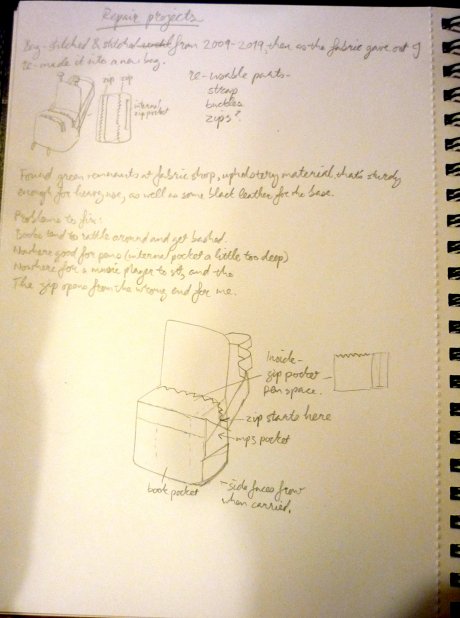 Repair projects
Bag - stitched & stitched from 2009-2019, then as the fabric gave out I
re-made it into a new bag.
zip zip
internal
zip pocket
re-usable parts-
strap
buckles
zips?
Found green remnants at fabric shop, upholstery material that's sturdy
enough for heavy use, as well as some black leather for the base.
Problems to fix:
Books tend to rattle around and get bashed.
Nowhere good for pens (internal pocket a little too deep)
Nowhere for a music player to sit, and the
The zip opens from the wrong end for me.
Inside-
zip pocket
pen space.
zip starts here
mp3 pocket
book pocket
-side faces front
when carried.